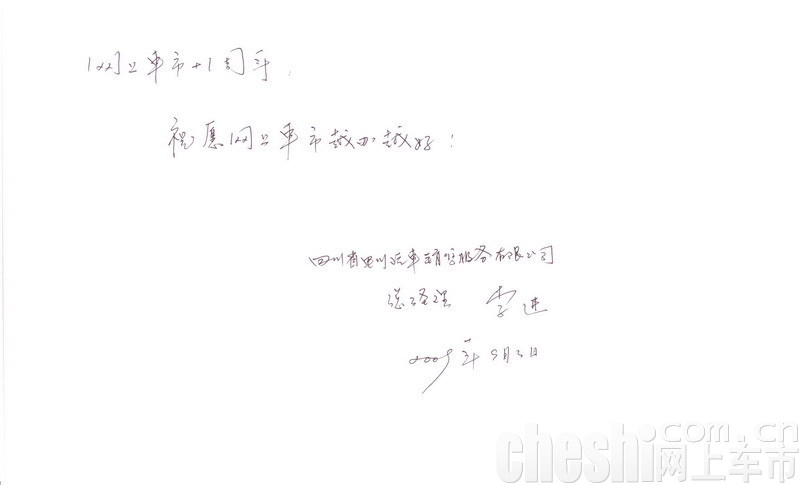 网上车市十1周年,
祝愿网上车市越办越好!
四川省 川汽车销售服务有限公司
总经理 李进
2009年9月3日
cheshi.com.cn
网上车市